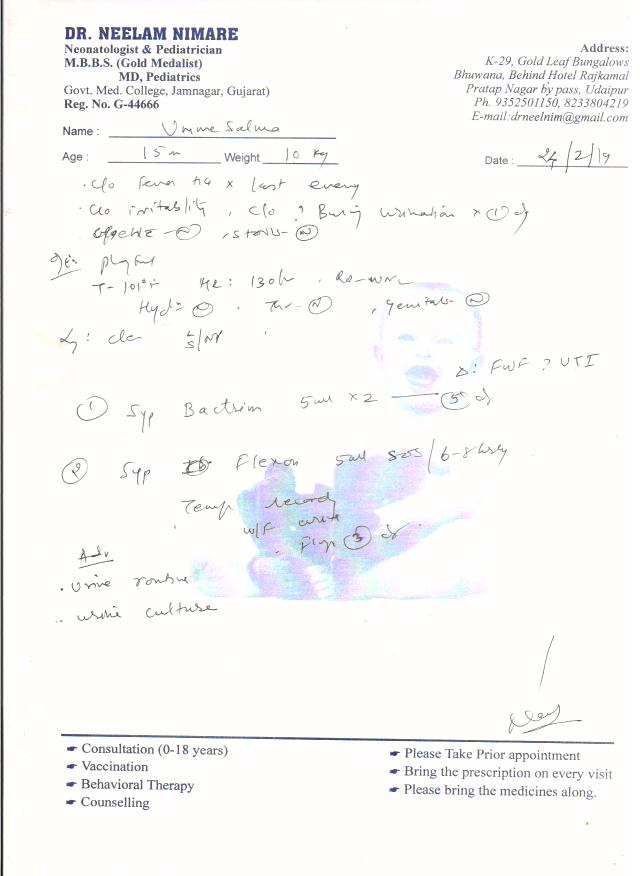 DR. NEELAM NIMARE
Neonatologist & Pediatrician
M.B.B.S. (Gold Medalist)
MD, Pediatrics
Govt. Med. College, Jamnagar, Gujarat)
Reg. No. G-44666
Address:
K-29, Gold Leaf Bungalows
Bhuwana, Behind Hotel Rajkamal
Pratap Nagar by pass, Udaipur
Ph. 9352501150, 8233804219
E-mail:drneelnim@gmail.com
Name : Umme Salma
Age : 15 m Weight 10 kg
Date : 24/2/19
. c/o fever x last
. c/o irritability , c/o ? urination x 1 d
, stools- N
T- 101°F HR: 130/ .
, genitals- N
Δ: FWF ? UTI
1 Syp Bactrim 5ml x 2 — 5 d
2 Syp Flexon 5ml SOS/6-8 hrly
Temp record
w/f
3 d
Adv
. Urine routine
. urine culture
☛ Consultation (0-18 years)
☛ Vaccination
☛ Behavioral Therapy
☛ Counselling
☛ Please Take Prior appointment
☛ Bring the prescription on every visit
☛ Please bring the medicines along.